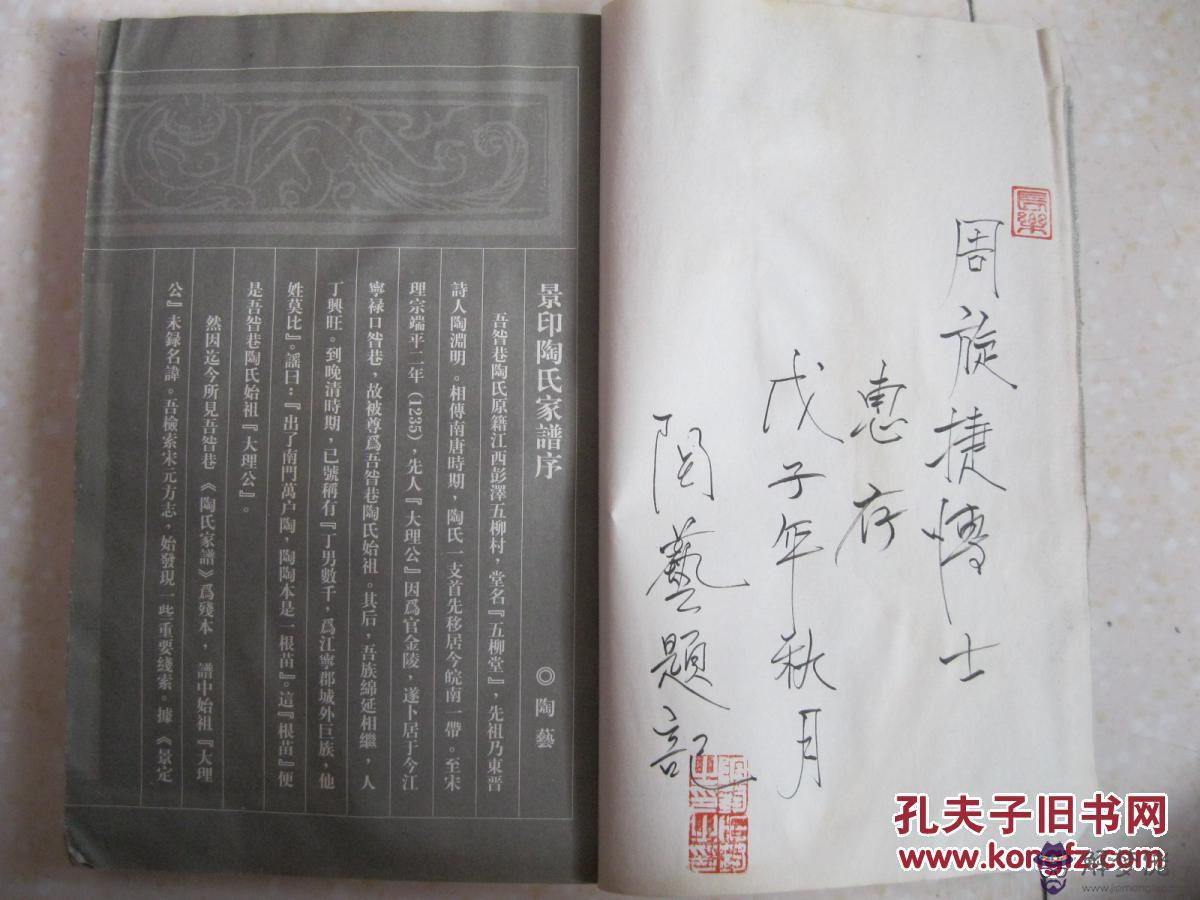 長樂
周旋捷博士
惠存
戊子年秋月
陶藝題記
景印陶氏家譜序
◎陶藝
吾昝巷陶氏原籍江西彭澤五柳村，堂名『五柳堂』，先祖乃東晋
詩人陶淵明。相傳南唐時期，陶氏一支首先移居今皖南一帶。至宋
理宗端平二年(1235)，先人『大理公』因爲官金陵，遂卜居于今江
寧禄口昝巷，故被尊爲吾昝巷陶氏始祖。其后，吾族綿延相繼，人
丁興旺。到晚清時期，已號稱有『丁男數千，爲江寧郡城外巨族，他
姓莫比』。謡曰：『出了南門萬户陶，陶陶本是一根苗』。這『根苗』便
是吾昝巷陶氏始祖『大理公』。
然因迄今所見吾昝巷《陶氏家譜》爲殘本，譜中始祖『大理
公』未録名諱。吾檢索宋元方志，始發現一些重要綫索。據《景定
孔夫子旧书网
www.kongfz.com
解夢佬
www.jiemenglao.com